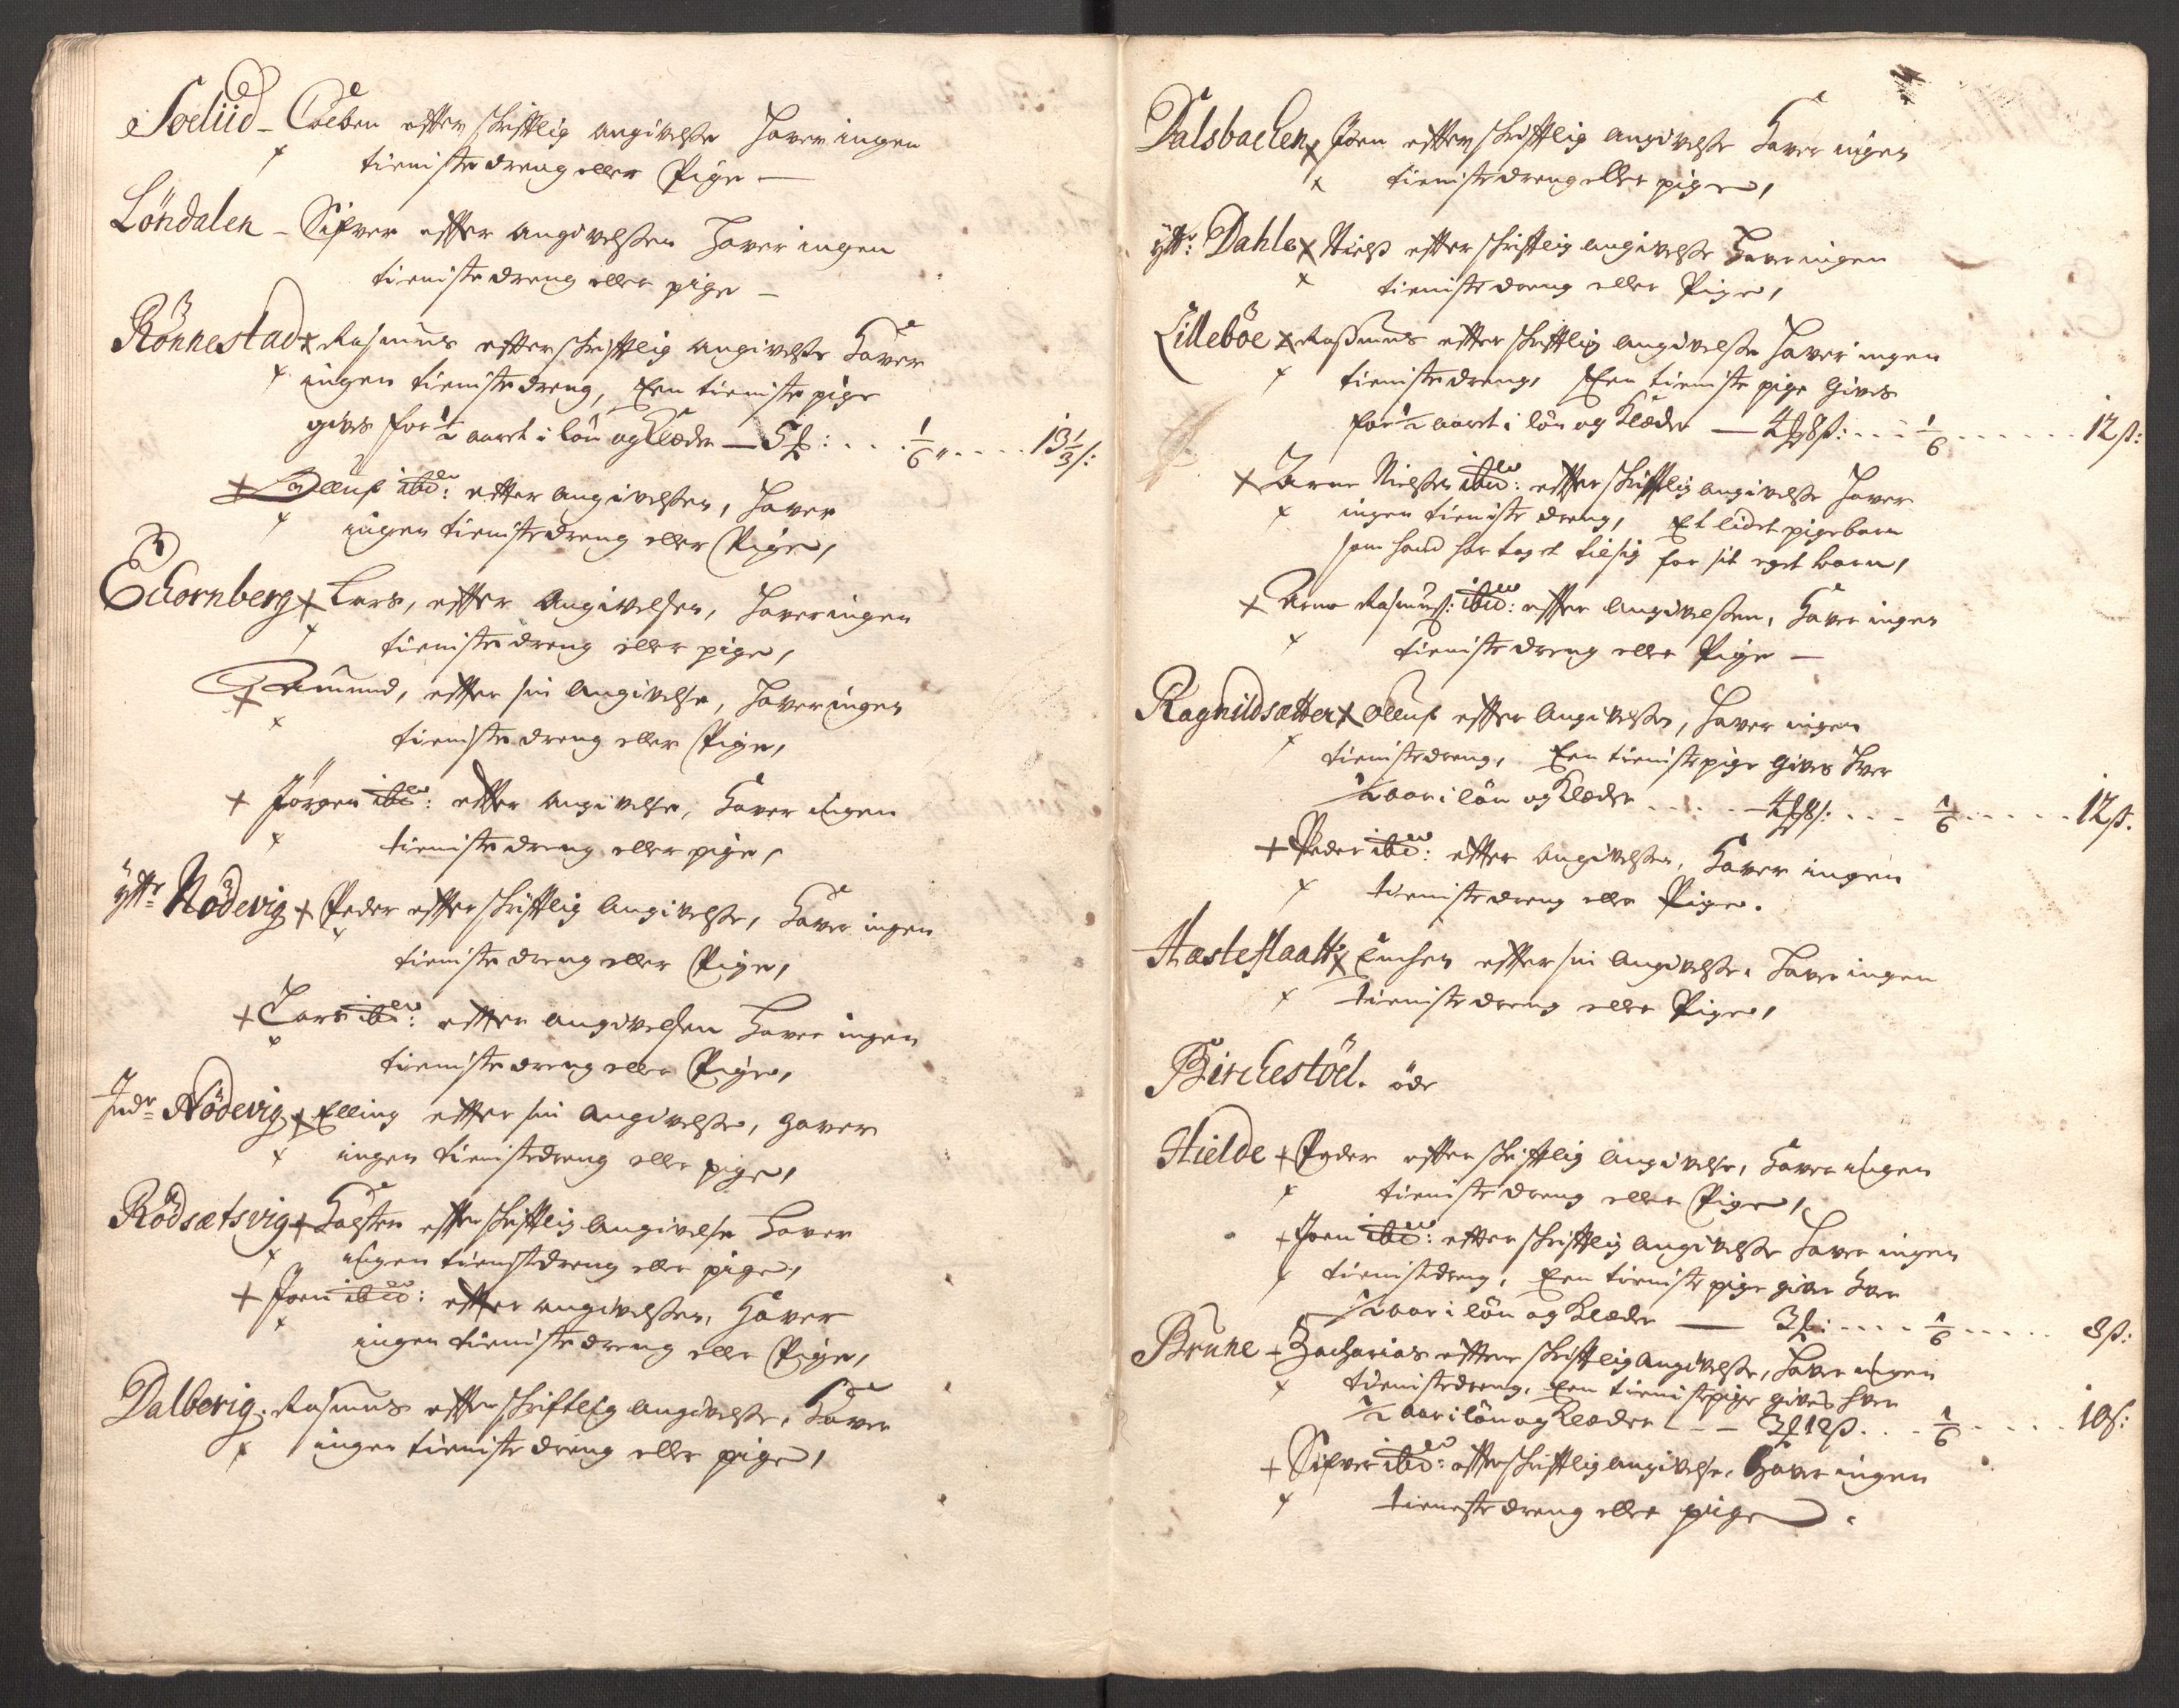 Soeliid - Colben effter schrifftlig angivelsse Haver ingen
tienistedreng eller Pige —
Löndalen - Sifver effter angivelssen Haver ingen
tienistedreng eller pige —
Rönnestad x Rasmus effterschrifftlig angivelsse Haver
x ingen tienistedreng, Een tieniste pige
gives for ½ aaret i lön og Klæder — 5 ... 1/6 .... 13 1/3 s:
x Oluf ibid: effter angivelssen, Haver
x ingen tienistedreng eller Pige,
Eckornberg x Lars, effter Angivelsen, Haver ingen
x tienistedreng eller pige,
x Amund, effter sin Angivelse, Haver ingen
x tienistedreng eller Pige,
x Jörgen ibid: effter angivelse, Haver ingen
x tienistedreng eller pige,
ÿttr Nödevig x Peder effter schrifftlig Angivelsse, Haver ingen
x tieniste dreng eller Pige,
x Lars ibid: effter angivelsen Haver ingen
x tienistedreng eller Pige,
Indr Nödevig x Elling effter sin Angivelsse, Haver
x ingen tienistedreng eller pige,
Rödsætsvig x Holsten effter schrifftlig Angivelse Haver
x ingen tienistedreng eller pige,
x Joen ibid: effter angivelssen, Haver
x ingen tienistedreng eller Pige,
Dalbevig. Rasmus effter schrifftlig angivelsse, Haver
x ingen tieniste dreng eller pige,
Dalsbacken x Joen effter schrifftlig angivelsse Haver ingen
x tienistedreng eller pige,
ÿtt: Dahle x Niels effter schrifftlig angivelsse Haver ingen
x tienistedreng eller Pige,
Lilleböe x Rasmus effter schrifftlig angivelsse Haver ingen
x tienistedreng, Een tieniste pige Gives
for ½ aaret i lön og Klæder — 4 8 ß: ... 1/6 ...... 12 ß:
x Arne Nielsen ibid: effter schrifftlig angivelsse Haver
x ingen tieniste dreng, Et lidet pigebarn
som hand har taget til sig for sit eget barn,
x Arne Rasmus: ibid: effter Angivelssen, Haver ingen
x tieniste dreng eller Pige —
Ragnildsætter x Oluf effter Angivelssen, Haver ingen
x tienistedreng, Een tienistepige gives hver
½ aar i lön og Klæder ..... 4 8 s: ... 1/6 ..... 12 ß.
x Peder ibid: effter Angivelssen, Haver ingen
x tienistedreng eller Pige.
Hæsteflaatt x effter sin Angivelsse, Haver ingen
x tienistedreng eller Pige,
Birckestöel. öde
Hielde x Peder effter schrifftlig Angivelse, Haver ingen
x tienistedreng eller Pige,
x Joen ibid: effter schrifftlig Angivelsse Haver ingen
x tienistedreng, Een tieniste pige giver hver
½ aar i lön og Klæder — 3 : .... 1/6 ..... 8 ß:
Brune x Zacharias effter schrifftlig Angivelsse, Haver ingen
x tienistedreng, Een tienistepige gives hver
½ aar i lön og Klæder - - 3 12 ß... 1/6 ..... 10 s:
x Sifver ibid: effter schrifftlig angivelse, Haver ingen
x tieniste dreng eller pige.